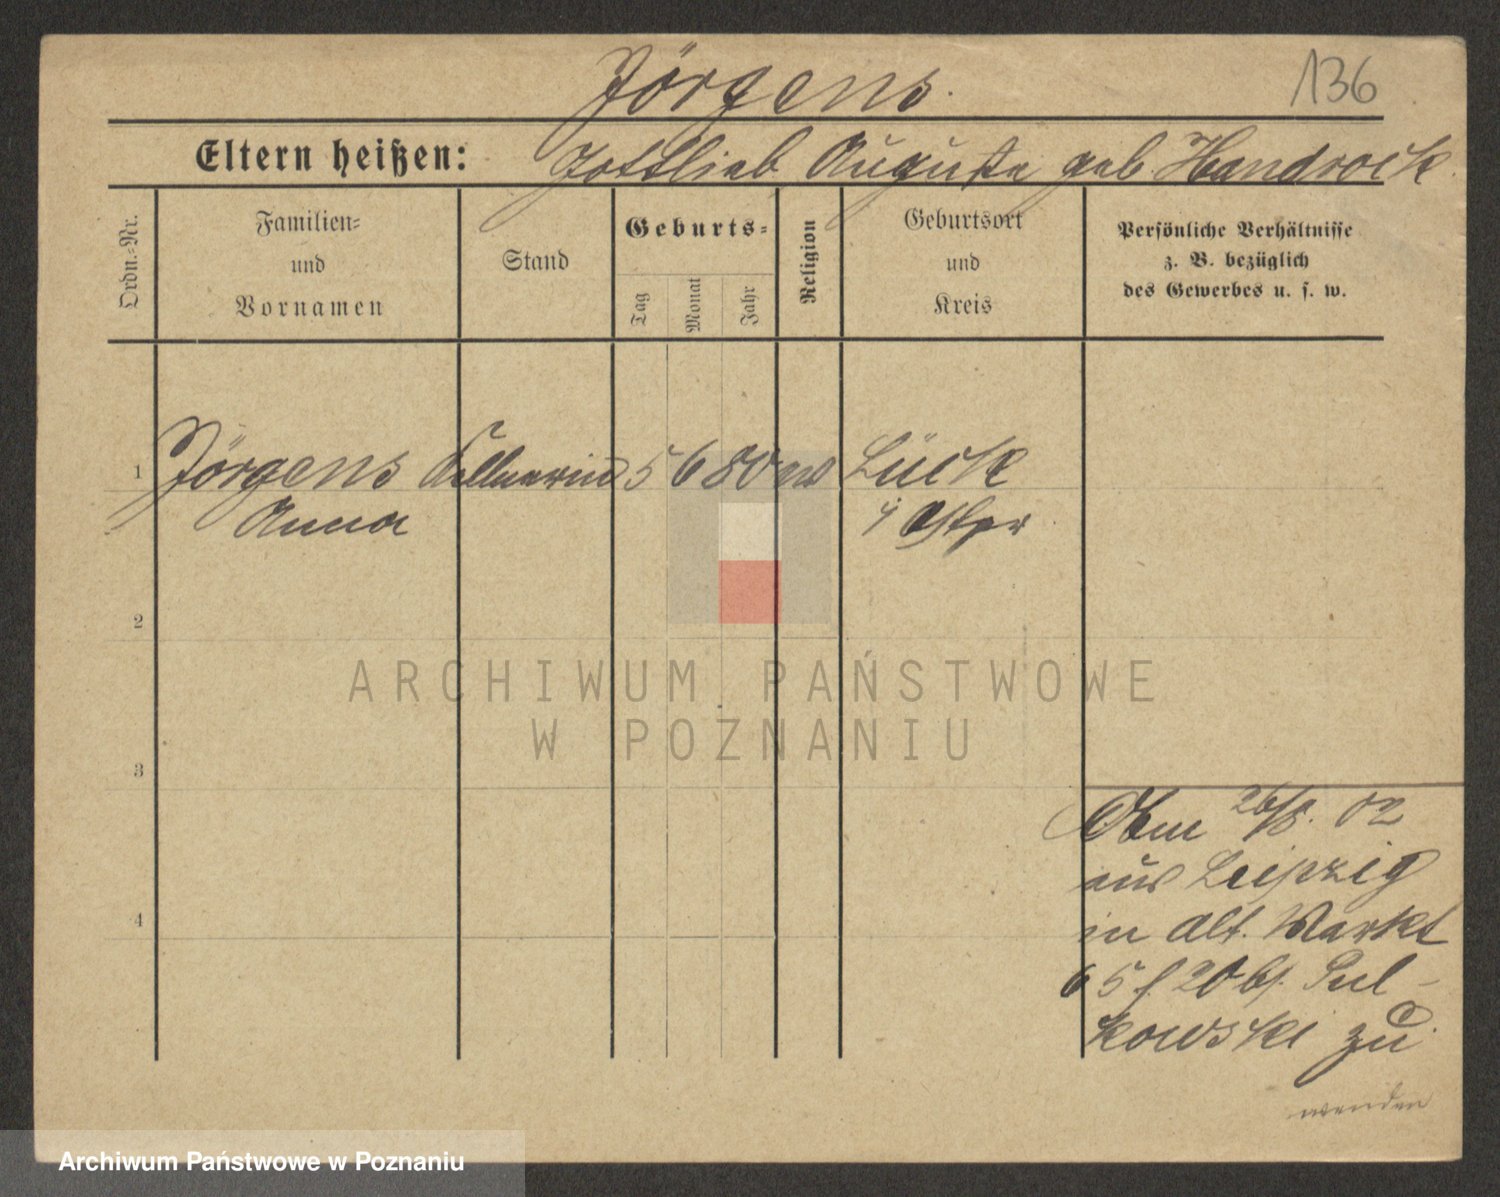 136
Jörgens.
Eltern heißen: Gottlieb Auguste geb. Handrock
Ordn.-Nr.
Familien-
und
Vornamen
Stand
Geburts-
Tag
Monat
Jahr
Religion
Geburtsort
und
Kreis
Persönliche Verhältnisse
z. B. bezüglich
des Gewerbes u. s. w.
1 Jörgens Kellnerin 5 6 80 ev Lück
Anna
2
3
4
26/8. 02
aus Leipzig
in Alt. Markt
65 20 Sul-
kowski zu
wenden
ARCHIWUM PAŃSTWOWE
W POZNANIU
Archiwum Państwowe w Poznaniu